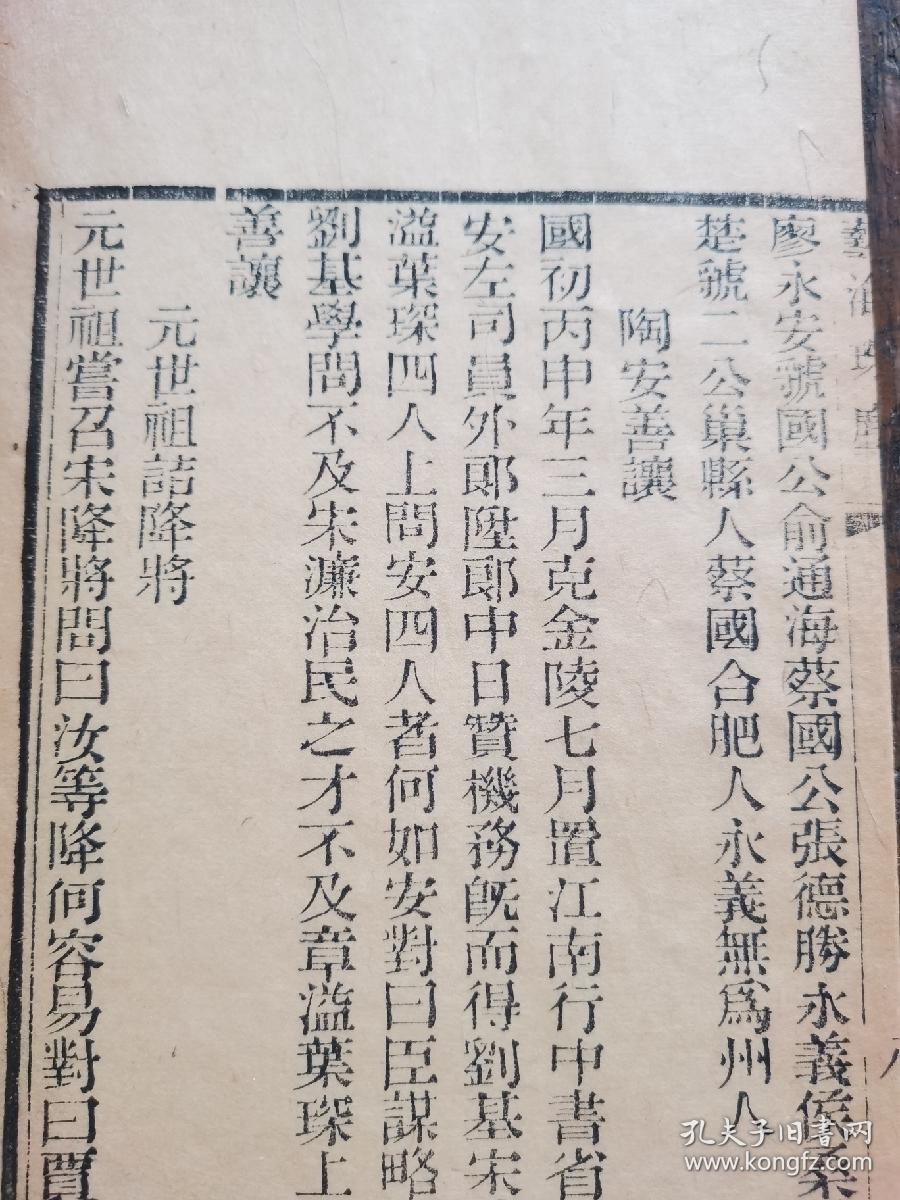 廖永安虢國公俞通海蔡國公張德勝永義侯桑
楚虢二公巢縣人蔡國合肥人永義無爲州人
陶安善讓
國初丙申年三月克金陵七月置江南行中書省
安左司員外郎陞郎中日贊機務旣而得劉基宋
溢葉琛四人上問安四人者何如安對曰臣謀略
劉基學問不及宋濂治民之才不及章溢葉琛上
善讓
元世祖詰降將
元世祖嘗召宋降將問曰汝等降何容易對曰賈
孔夫子旧书网
www.kongfz.com